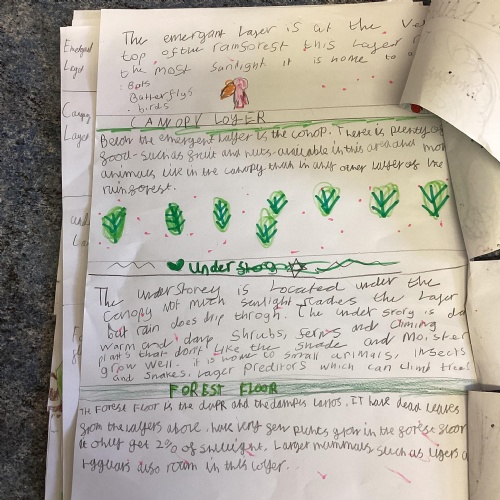 The emergant Layer is at the Ve
top of the rainsorest this Layer
the most sunlight it is home to a
Bats
Butterflys
birds
Emergent
Layer
CANOPY LAYER
Canopy
Layer
Below the emergent layer is the conop. There is plenty of
food such as fruit and nuts available in this area and mor
animals live in the canopy than in any other Layer of the
rainforest.
und
La
understory
The understorey is Located under the
Canopy not much sunlight reaches the Layer
but rain does drip throgh. The under story is da
warm and damp Shrubs, ferns and Climing
plants that don't like the shade and Moister
grow well. it is home to small animals, insects
and snakes. Lager preditors which can climb trees
FOREST FLOOR
TH Forese Floor is the darkR and the dampes Layos. IT have dead leaves
from the layers above. have very few plants grow in the forese floor
it only get 2% of sunlight. Larger mammals such as tigers a
Jaguars also roam in this Layer.